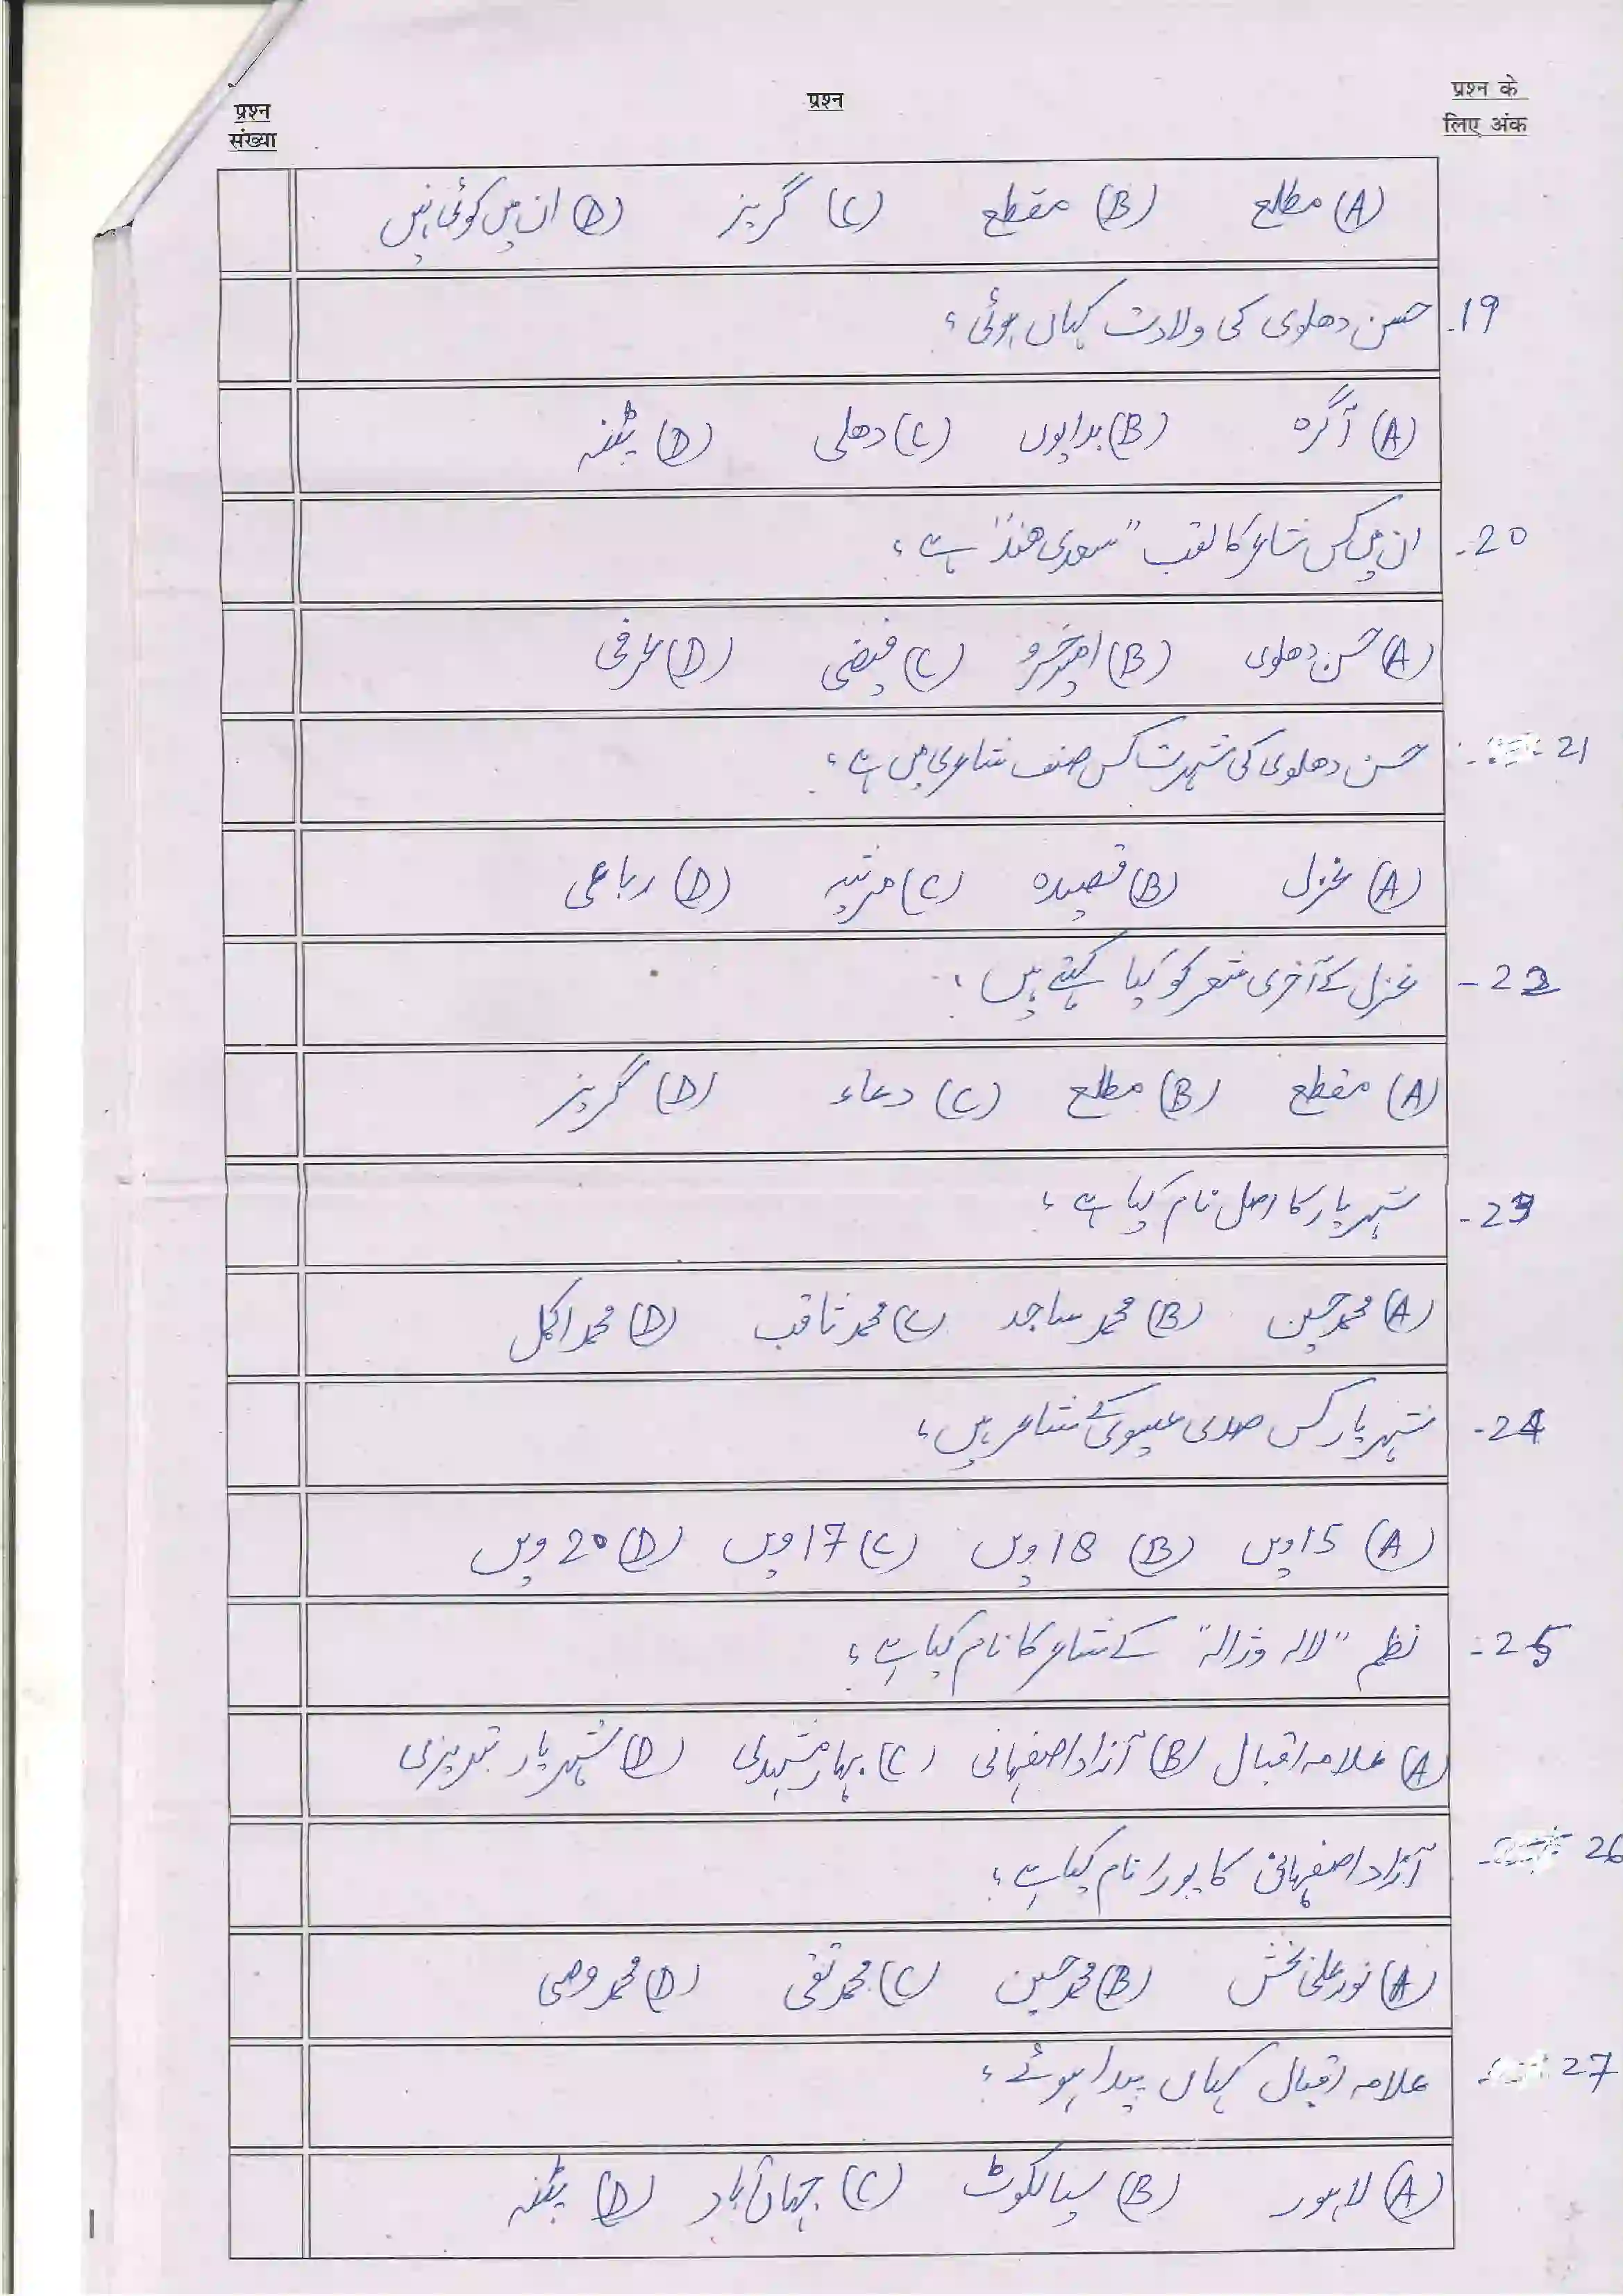 प्रश्न संख्या
प्रश्न
प्रश्न के लिए अंक
(A) مطلع (B) مقطع (C) گریز (D) ان میں کوئی نہیں
19۔ حسن دھلوی کی ولادت کہاں ہوئی ؟
(A) آگرہ (B) بدایوں (C) دھلی (D) پٹنہ
20۔ ان میں کس شاعر کا لقب "سعدی ھند" ہے ؟
(A) حسن دھلوی (B) امیر خسرو (C) فیضی (D) عرفی
21 حسن دھلوی کی شہرت کس صنف شاعری میں ہے ؟
(A) غزل (B) قصیدہ (C) مرثیہ (D) رباعی
22۔ غزل کے آخری شعر کو کیا کہتے ہیں ؟
(A) مقطع (B) مطلع (C) دعاء (D) گریز
23۔ شہریار کا اصل نام کیا ہے ؟
(A) محمد حسین (B) محمد ساجد (C) محمد ثاقب (D) محمد اکمل
24۔ شہریار کس صدی عیسوی کے شاعر ہیں ؟
(A) 15ویں (B) 18ویں (C) 17ویں (D) 20ویں
25۔ نظم "لالہ وژالہ" کے شاعر کا نام کیا ہے ؟
(A) علامہ اقبال (B) آزاد اصفہانی (C) بہار مشہدی (D) شہریار تبریزی
26 آزاد اصفہانی کا پورا نام کیا ہے ؟
(A) نور علی بخش (B) محمد حسین (C) محمد تقی (D) محمد وصی
27 علامہ اقبال کہاں پیدا ہوئے ؟
(A) لاہور (B) سیالکوٹ (C) جہاں آباد (D) پٹنہ